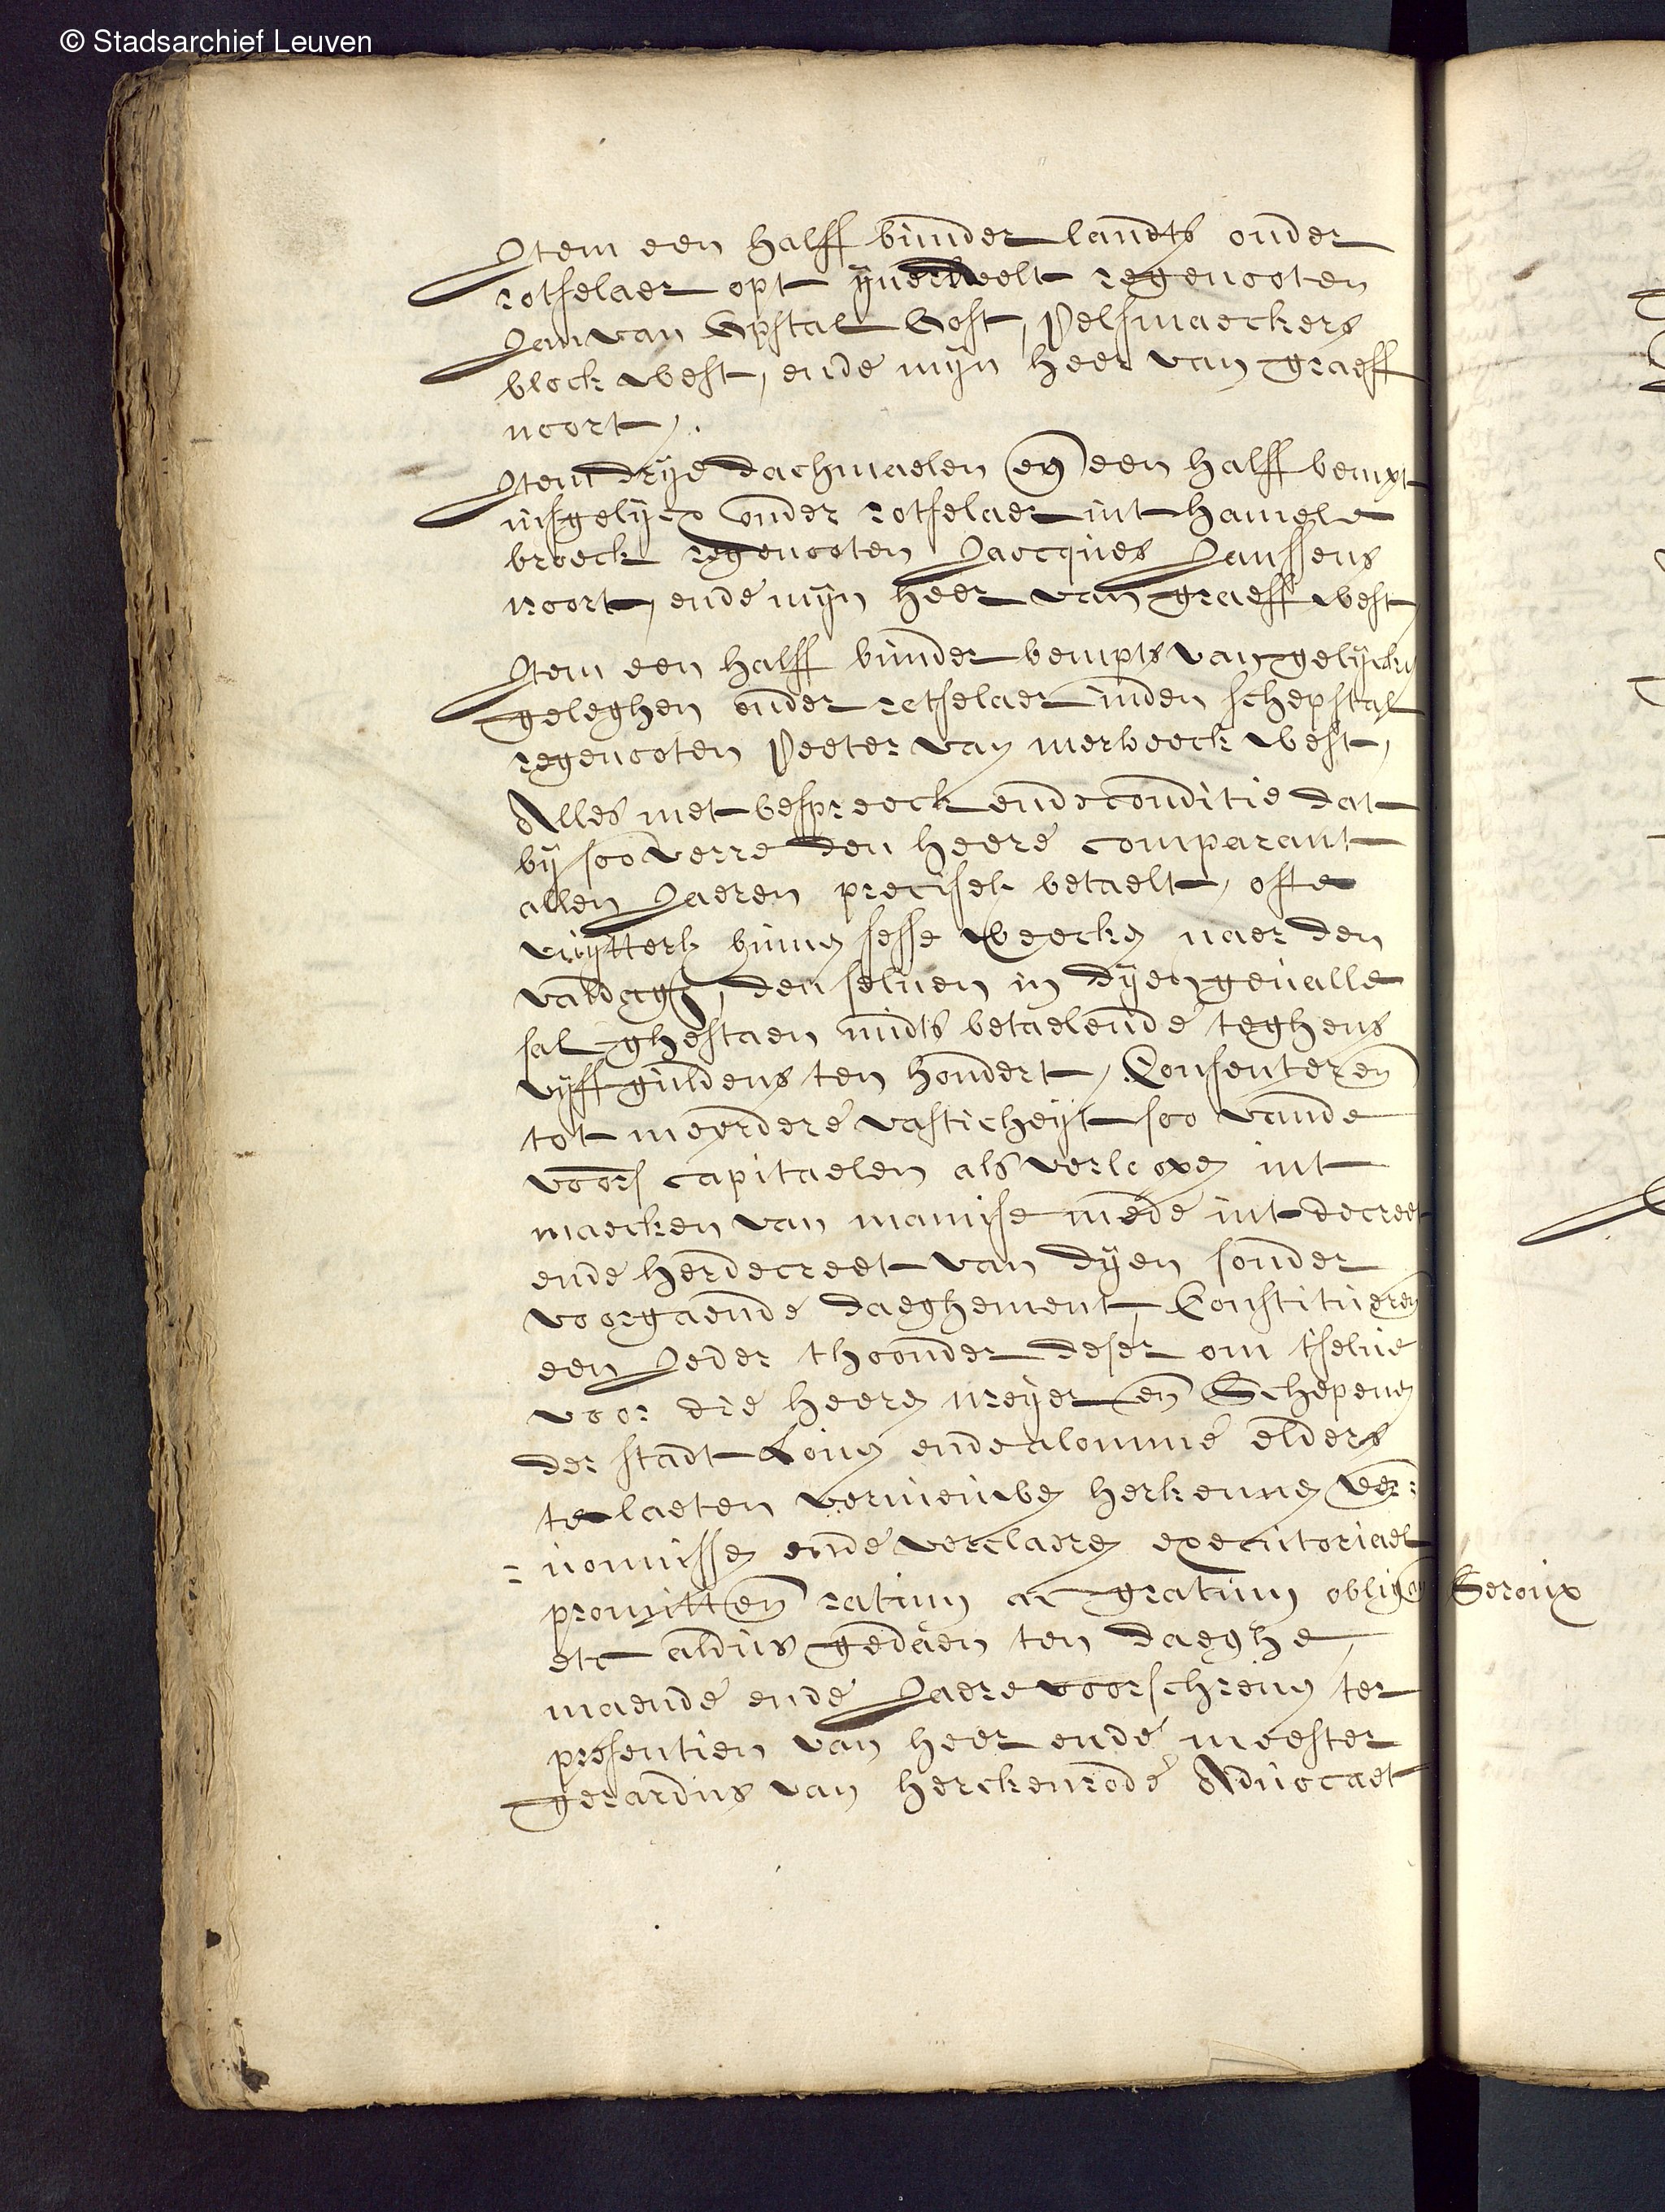 © Stadsarchief Leuven
Item een halff bunder landts onder
rotselaer opt regenooten
Jan van Opstal Oost, Pelsmaeckers
block west, ende mijn heer van graeff
noort,.
Item drije dachmaelen en een halff bempt
insgelijcx onder rotselaer int hamel
broeck regenooten Jacques Janssens
noort, ende mijn heer van graeff west,
Item een halff bunder bempts van gelijcken
geleghen onder rotselaer inden schepstal
regenooten Peeter van merbeeck west,
Alles met bespreeck ende conditie dat
bij soo verre den heere comparant
allen Jaeren precisel. betaelt, ofte
vuytterl. binnen sesse weecken naer den
valdagh, den seluen in dijen geualle
sal ghestaen midts betaelende teghens
vijff guldens ten hondert, Consenteren
tot meerdere vasticheyt soo vande
voors capitaelen als verloopen int
maecken van mainise mede int decreet
ende herdecreet van dijen sonder
voorgaende daeghement, Constitueren
een Jeder thoonder deser om tselue
voor die heeren meyer en Schepenen
der stadt Louen ende alomme elders
te laeten vernieuwen herkennen ver¬
= nonnissen ende verclaeren executoriael
promitten ratum ac gratum obligen
etc aldus gedaen ten daeghe,
maende ende Jaere voorschreuen ter
presentien van heer ende meester
gerardus van herckenrode Aduocaet
Seroux